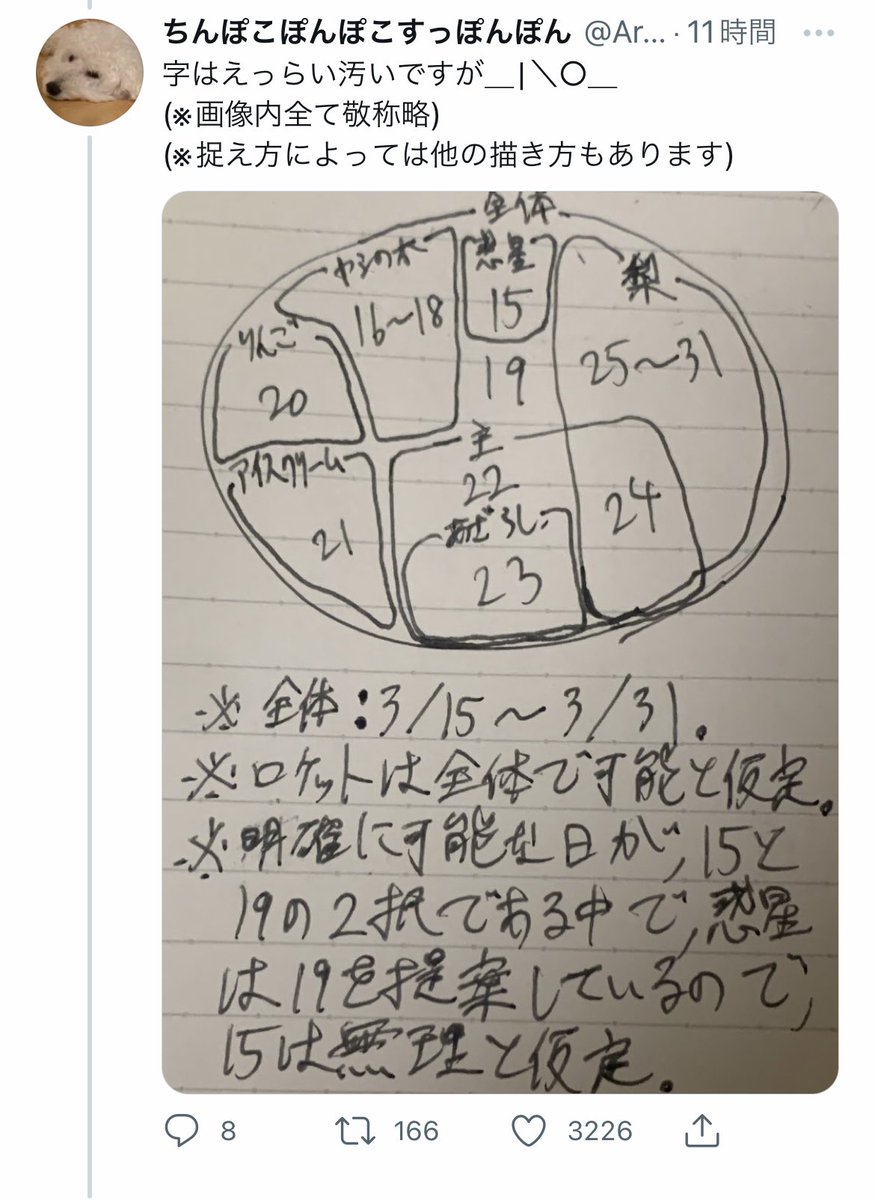 ちんぽこぽんぽこすっぽんぽん @Ar... · 11時間 …
字はえっらい汚いですが__|＼〇__
(※画像内全て敬称略)
(※捉え方によっては他の描き方もあります)
全体
ヤシの木
惑星
梨
15
16〜18
りんご
19
25〜31
20
主
アイスクリーム
22
24
21
あざらし
23
※ 全体:3/15〜3/31.
※ロケットは全体で可能と仮定.
※明確に可能な日が,15と
19の2択である中で,惑星
は19を提案しているので,
15は無理と仮定.
8 166 3226